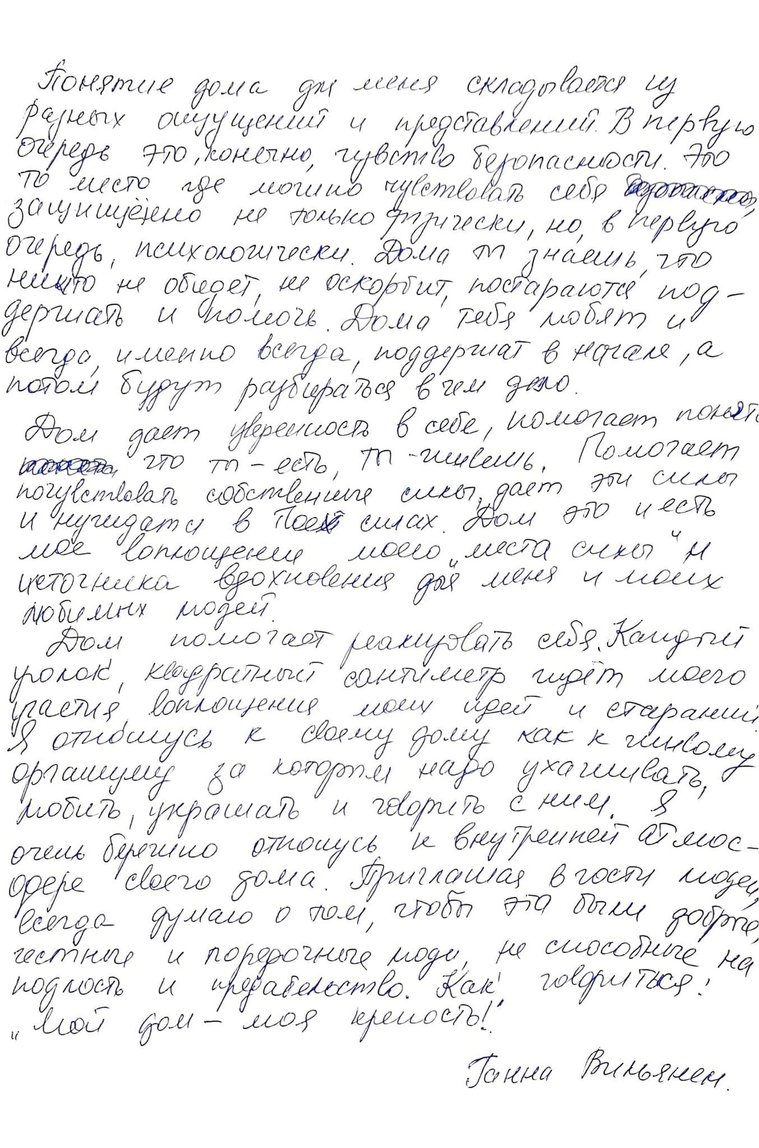 Понятие дома для меня складывается из
разных ощущений и представлений. В первую
очередь это, конечно, чувство безопасности. Это
то место где можно чувствовать себя
защищённо не только физически, но, в первую
очередь, психологически. Дома ты знаешь, что
никто не обидет, не оскорбит, постараются под-
держать и помочь. Дома тебя любят и
всегда, именно всегда, поддержат в начале, а
потом будут разбираться в чем дело.
Дом дает уверенность в себе, помогает понять
что ты - есть, ты - живешь. Помогает
почувствовать собственные силы, дает эти силы
и нуждается в твоих силах. Дом это и есть
мое воплощение моего „места силы" и
источника вдохновения для меня и моих
любимых людей.
Дом помогает реализовать себя. Каждый
уголок, квадратный сантиметр ждёт моего
участия, воплощения моих идей и стараний.
Я отношусь к своему дому как к живому
организму за которым надо ухаживать,
любить, украшать и говорить с ним. Я
очень бережно отношусь к внутренней атмос-
фере своего дома. Приглашая в гости людей,
всегда думаю о том, чтобы эта были добрые,
честные и порядочные люди, не способные на
подлость и предательство. Как говориться:
„Мой дом - моя крепость!"
Ганна Виньянен.